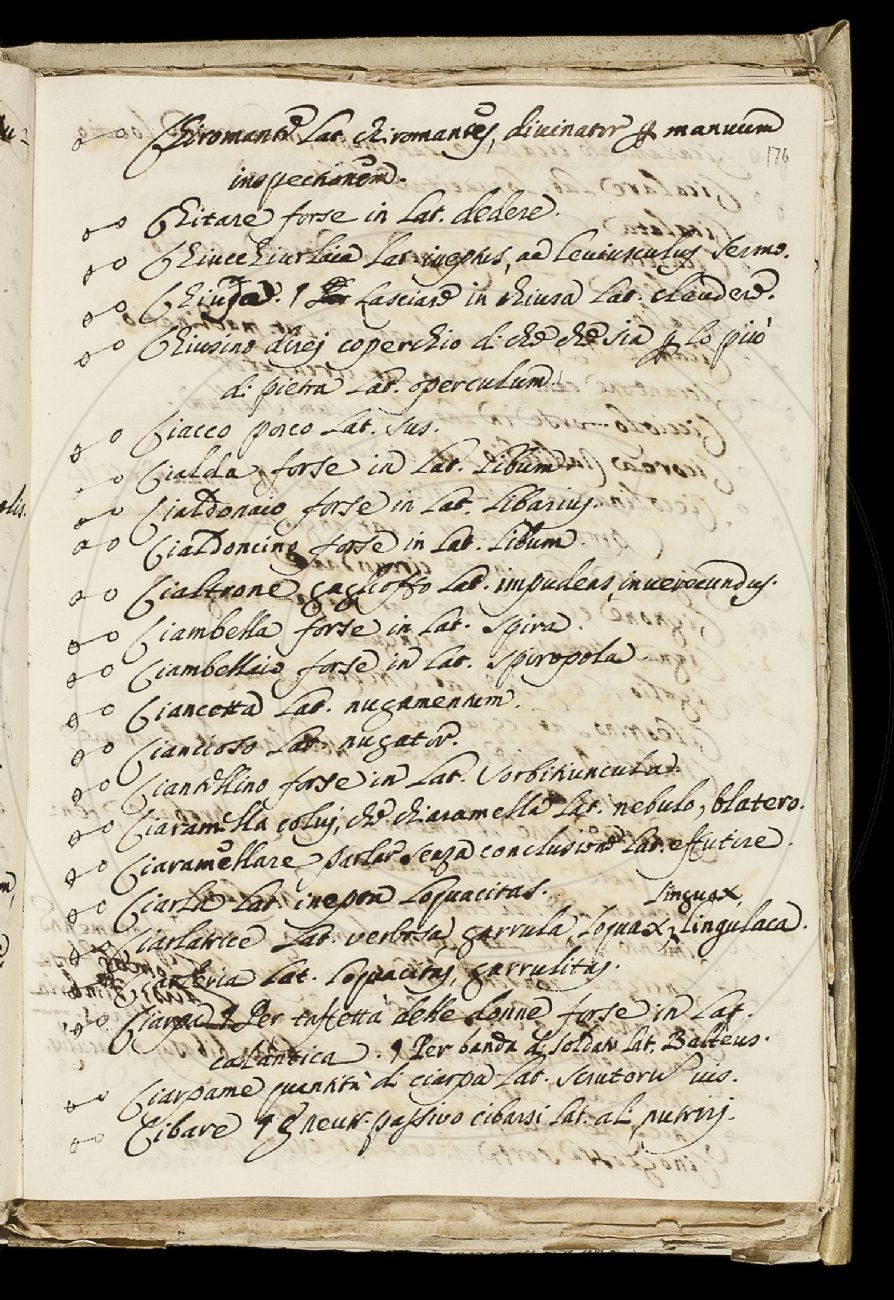 Chiromante Lat. chiromantes, divinator p manuum
176
inspectionem.
Chitare forse in Lat. dedere.
Chiucchiurlaia Lat. ineptus, ac leviusculus sermo.
Chiusa. ¶ Lasciare in chiusa Lat. claudere.
Chiusino direi coperchio di che che sia p lo più
di pietra Lat. operculum.
Ciacco porco Lat. sus.
Cialda forse in Lat. Libum
Cialdonaio forse in Lat. Libarius.
Cialdoncino forse in Lat. Libum.
Cialtrone gaglioffo Lat. impudens, inverecundus.
Ciambella forse in Lat. Spira.
Ciambellaio forse in Lat. Spiropola.
Ciancetta Lat. nugamentum.
Ciancioso Lat. nugator.
Ciantellino forse in Lat. Sorbitiuncula.
Ciaramella colui, che chiaramella Lat. nebulo, blatero.
Ciaramellare parlar senza conclusione Lat. effutire.
Ciarla Lat. inepta Loquacitas.
linguax
Ciarlatrice Lat. verbosa, garrula, Loquax, lingulaca.
Ciarleria Lat. Loquacitas, garrulitas.
Ciarpa ¶ Per taffettà delle donne forse in Lat.
calantica. ¶ Per banda di soldati Lat. Balteus.
Ciarpame quantità di ciarpa Lat. Scrutorum vis.
Cibare ¶ neutr. passivo cibarsi Lat. ali, nutriri.